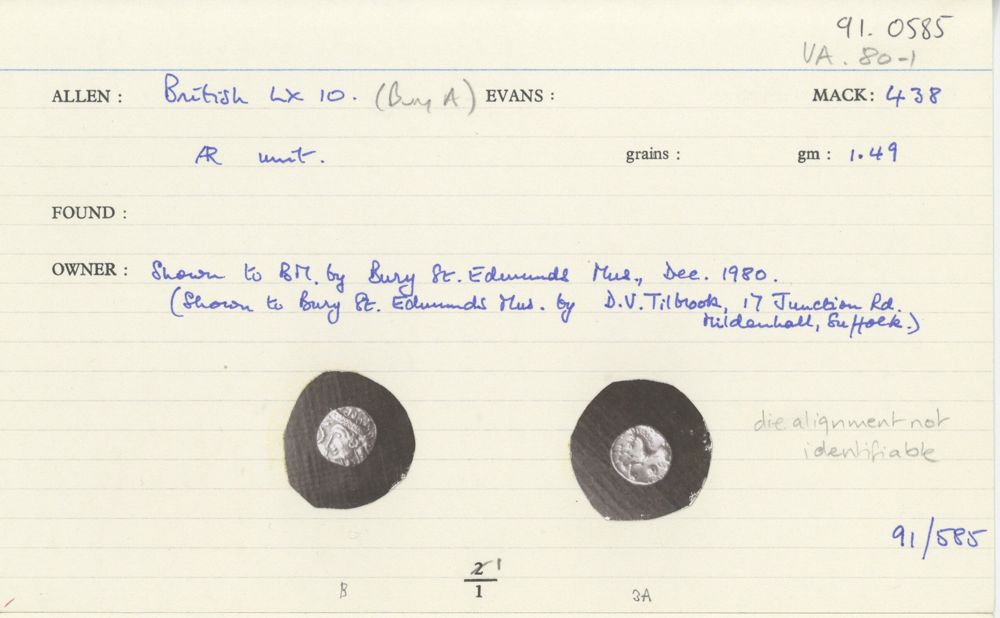 91. 0585
VA. 80-1
ALLEN : British LX 10. (Bury A) EVANS : MACK: 438
AR unit. grains : gm : 1.49
FOUND :
OWNER : Shown to BM. by Bury St. Edmunds Mus., Dec. 1980.
(Shown to Bury St. Edmunds Mus. by D.V. Tilbrook, 17 Junction Rd.
Mildenhall, Suffolk.)
die alignment not
identifiable
91/585
2 1
1
B 3A